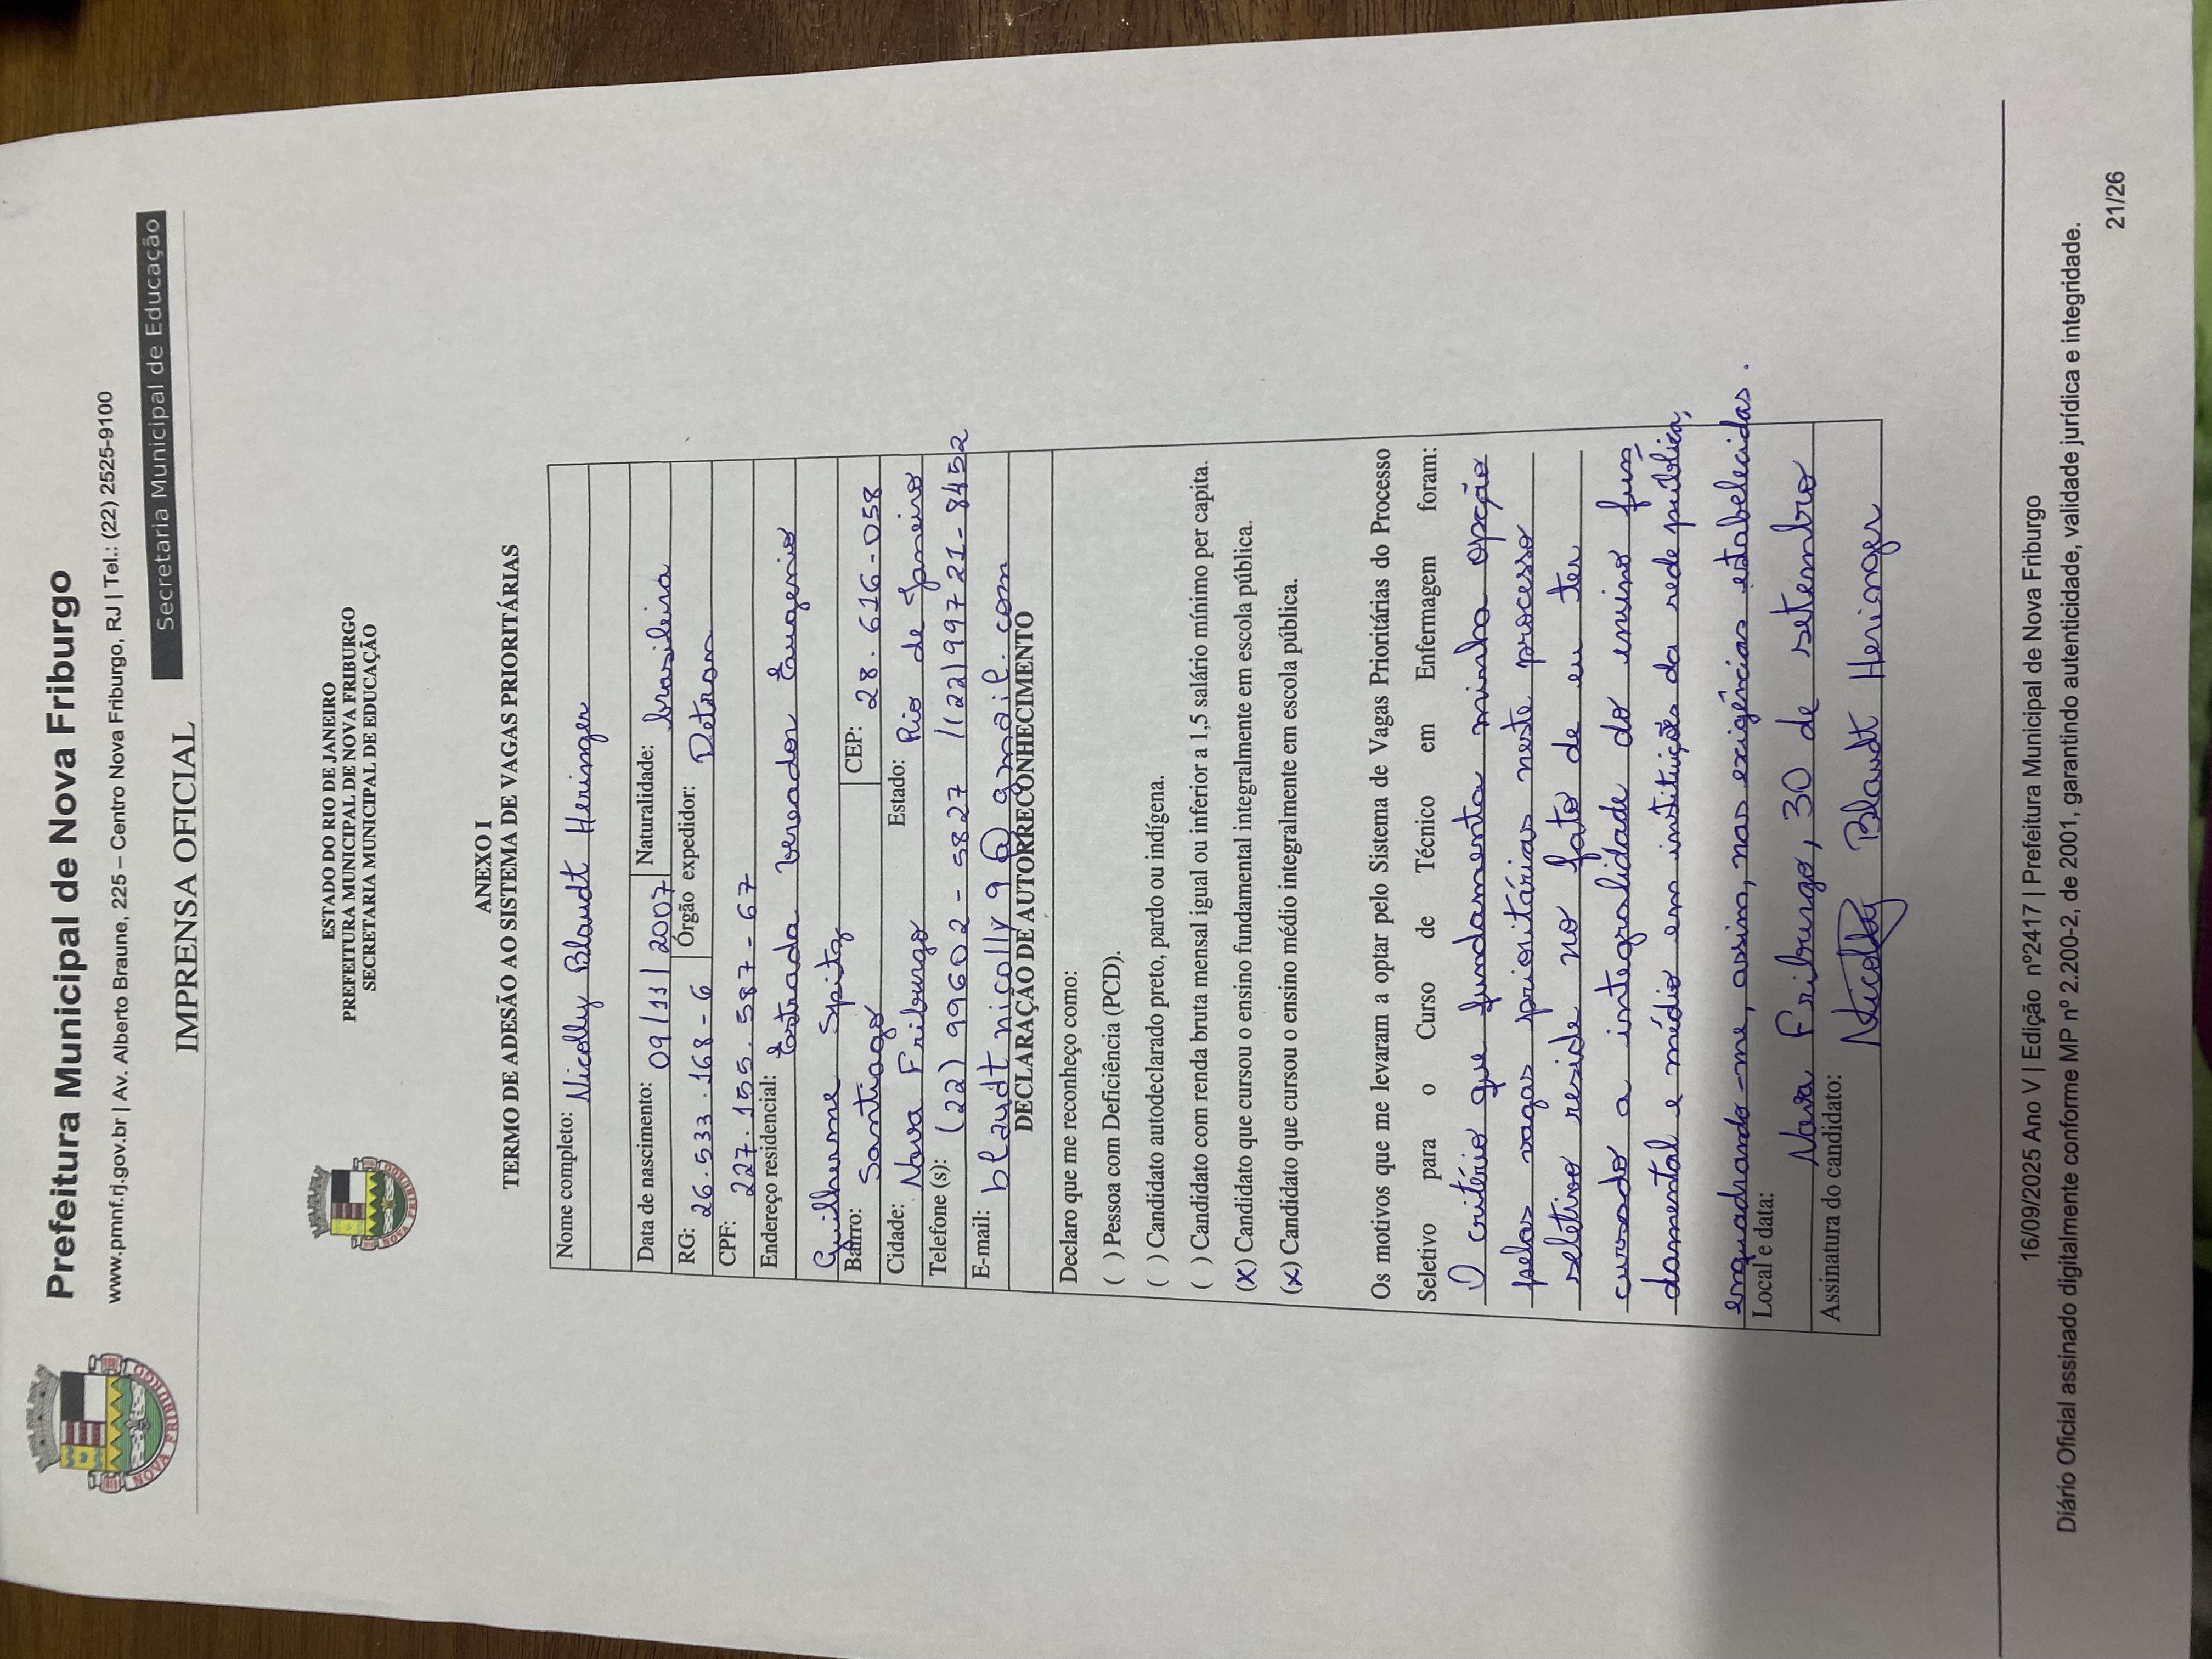 Prefeitura Municipal de Nova Friburgo
www.pmnf.rj.gov.br | Av. Alberto Braune, 225 – Centro Nova Friburgo, RJ | Tel.: (22) 2525-9100
Secretaria Municipal de Educação
IMPRENSA OFICIAL
NOVA FRIBURGO
ESTADO DO RIO DE JANEIRO
PREFEITURA MUNICIPAL DE NOVA FRIBURGO
SECRETARIA MUNICIPAL DE EDUCAÇÃO
NOVA FRIBURGO
ANEXO I
TERMO DE ADESÃO AO SISTEMA DE VAGAS PRIORITÁRIAS
Nome completo: Nicolly Blaudt Heringer
Data de nascimento: 09/11/2007 Naturalidade: brasileira
RG: 26.533.168-6 Órgão expedidor: Detran
CPF: 227.155.587-67
Endereço residencial: Estrada Vereador Eugenio
Guilherme Spitz
Bairro: Santiago CEP: 28.616-058
Cidade: Nova Friburgo Estado: Rio de Janeiro
Telefone (s): (22) 99602-5827 /(22)99721-8452
E-mail: blaudtnicolly9@gmail.com
DECLARAÇÃO DE AUTORRECONHECIMENTO
Declaro que me reconheço como:
( ) Pessoa com Deficiência (PCD).
( ) Candidato autodeclarado preto, pardo ou indígena.
( ) Candidato com renda bruta mensal igual ou inferior a 1,5 salário mínimo per capita.
(x) Candidato que cursou o ensino fundamental integralmente em escola pública.
(x) Candidato que cursou o ensino médio integralmente em escola pública.
Os motivos que me levaram a optar pelo Sistema de Vagas Prioritárias do Processo
Seletivo para o Curso de Técnico em Enfermagem foram:
O critério que fundamenta minha opção
pelas vagas prioritárias neste processo
seletivo reside no fato de eu ter
cursado a integralidade do ensino fun
damental e médio em instituições da rede pública,
enquadrando-me, assim, nas exigências estabelecidas.
Local e data: Nova Friburgo, 30 de setembro
Assinatura do candidato: Nicolly Blaudt Heringer
16/09/2025 Ano V | Edição nº2417 | Prefeitura Municipal de Nova Friburgo
Diário Oficial assinado digitalmente conforme MP nº 2.200-2, de 2001, garantindo autenticidade, validade jurídica e integridade.
21/26